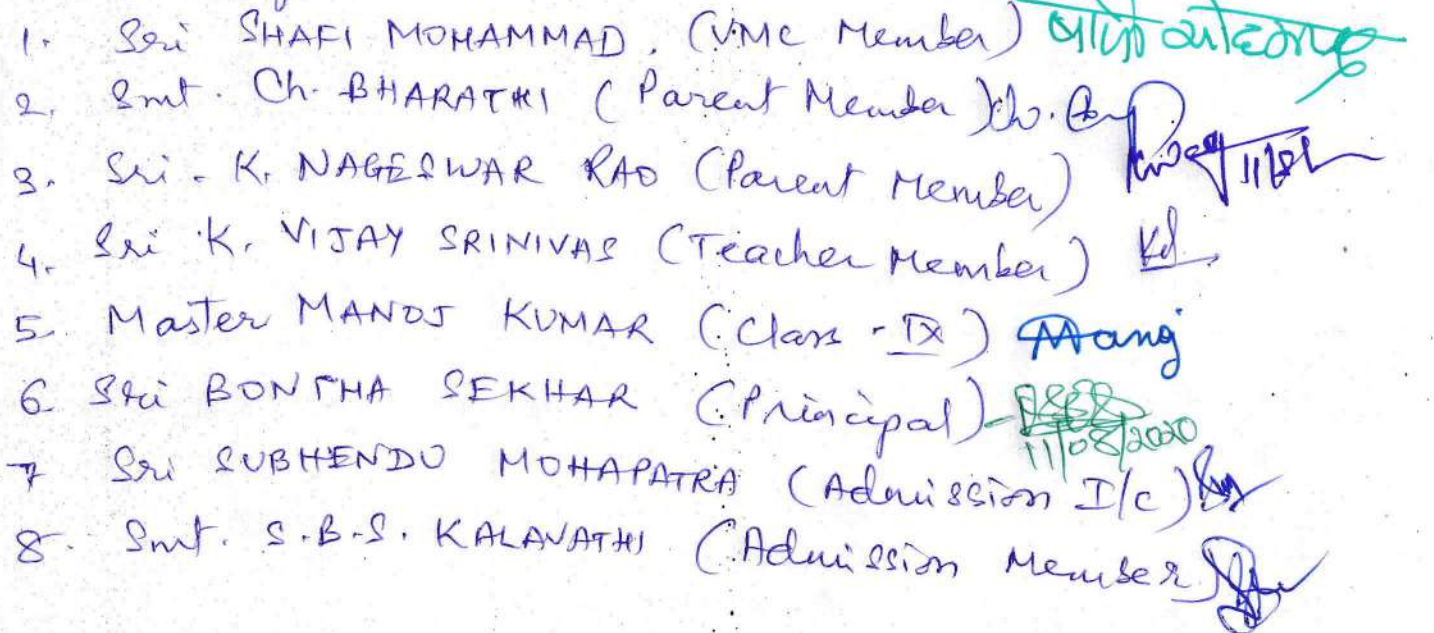 1. Sri SHAFI MOHAMMAD. (VMC Member)
2. Smt. Ch. BHARATHI (Parent Member) Ch.
3. Sri. K. NAGESWAR RAO (Parent Member)
4. Sri K. VIJAY SRINIVAS (Teacher Member)
5. Master MANOJ KUMAR (Class - IX) Manoj
6. Sri BONTHA SEKHAR (Principal)
11/08/2020
7 Sri SUBHENDU MOHAPATRA (Admission I/c)
8. Smt. S.B.S. KALAVATHI (Admission Member)